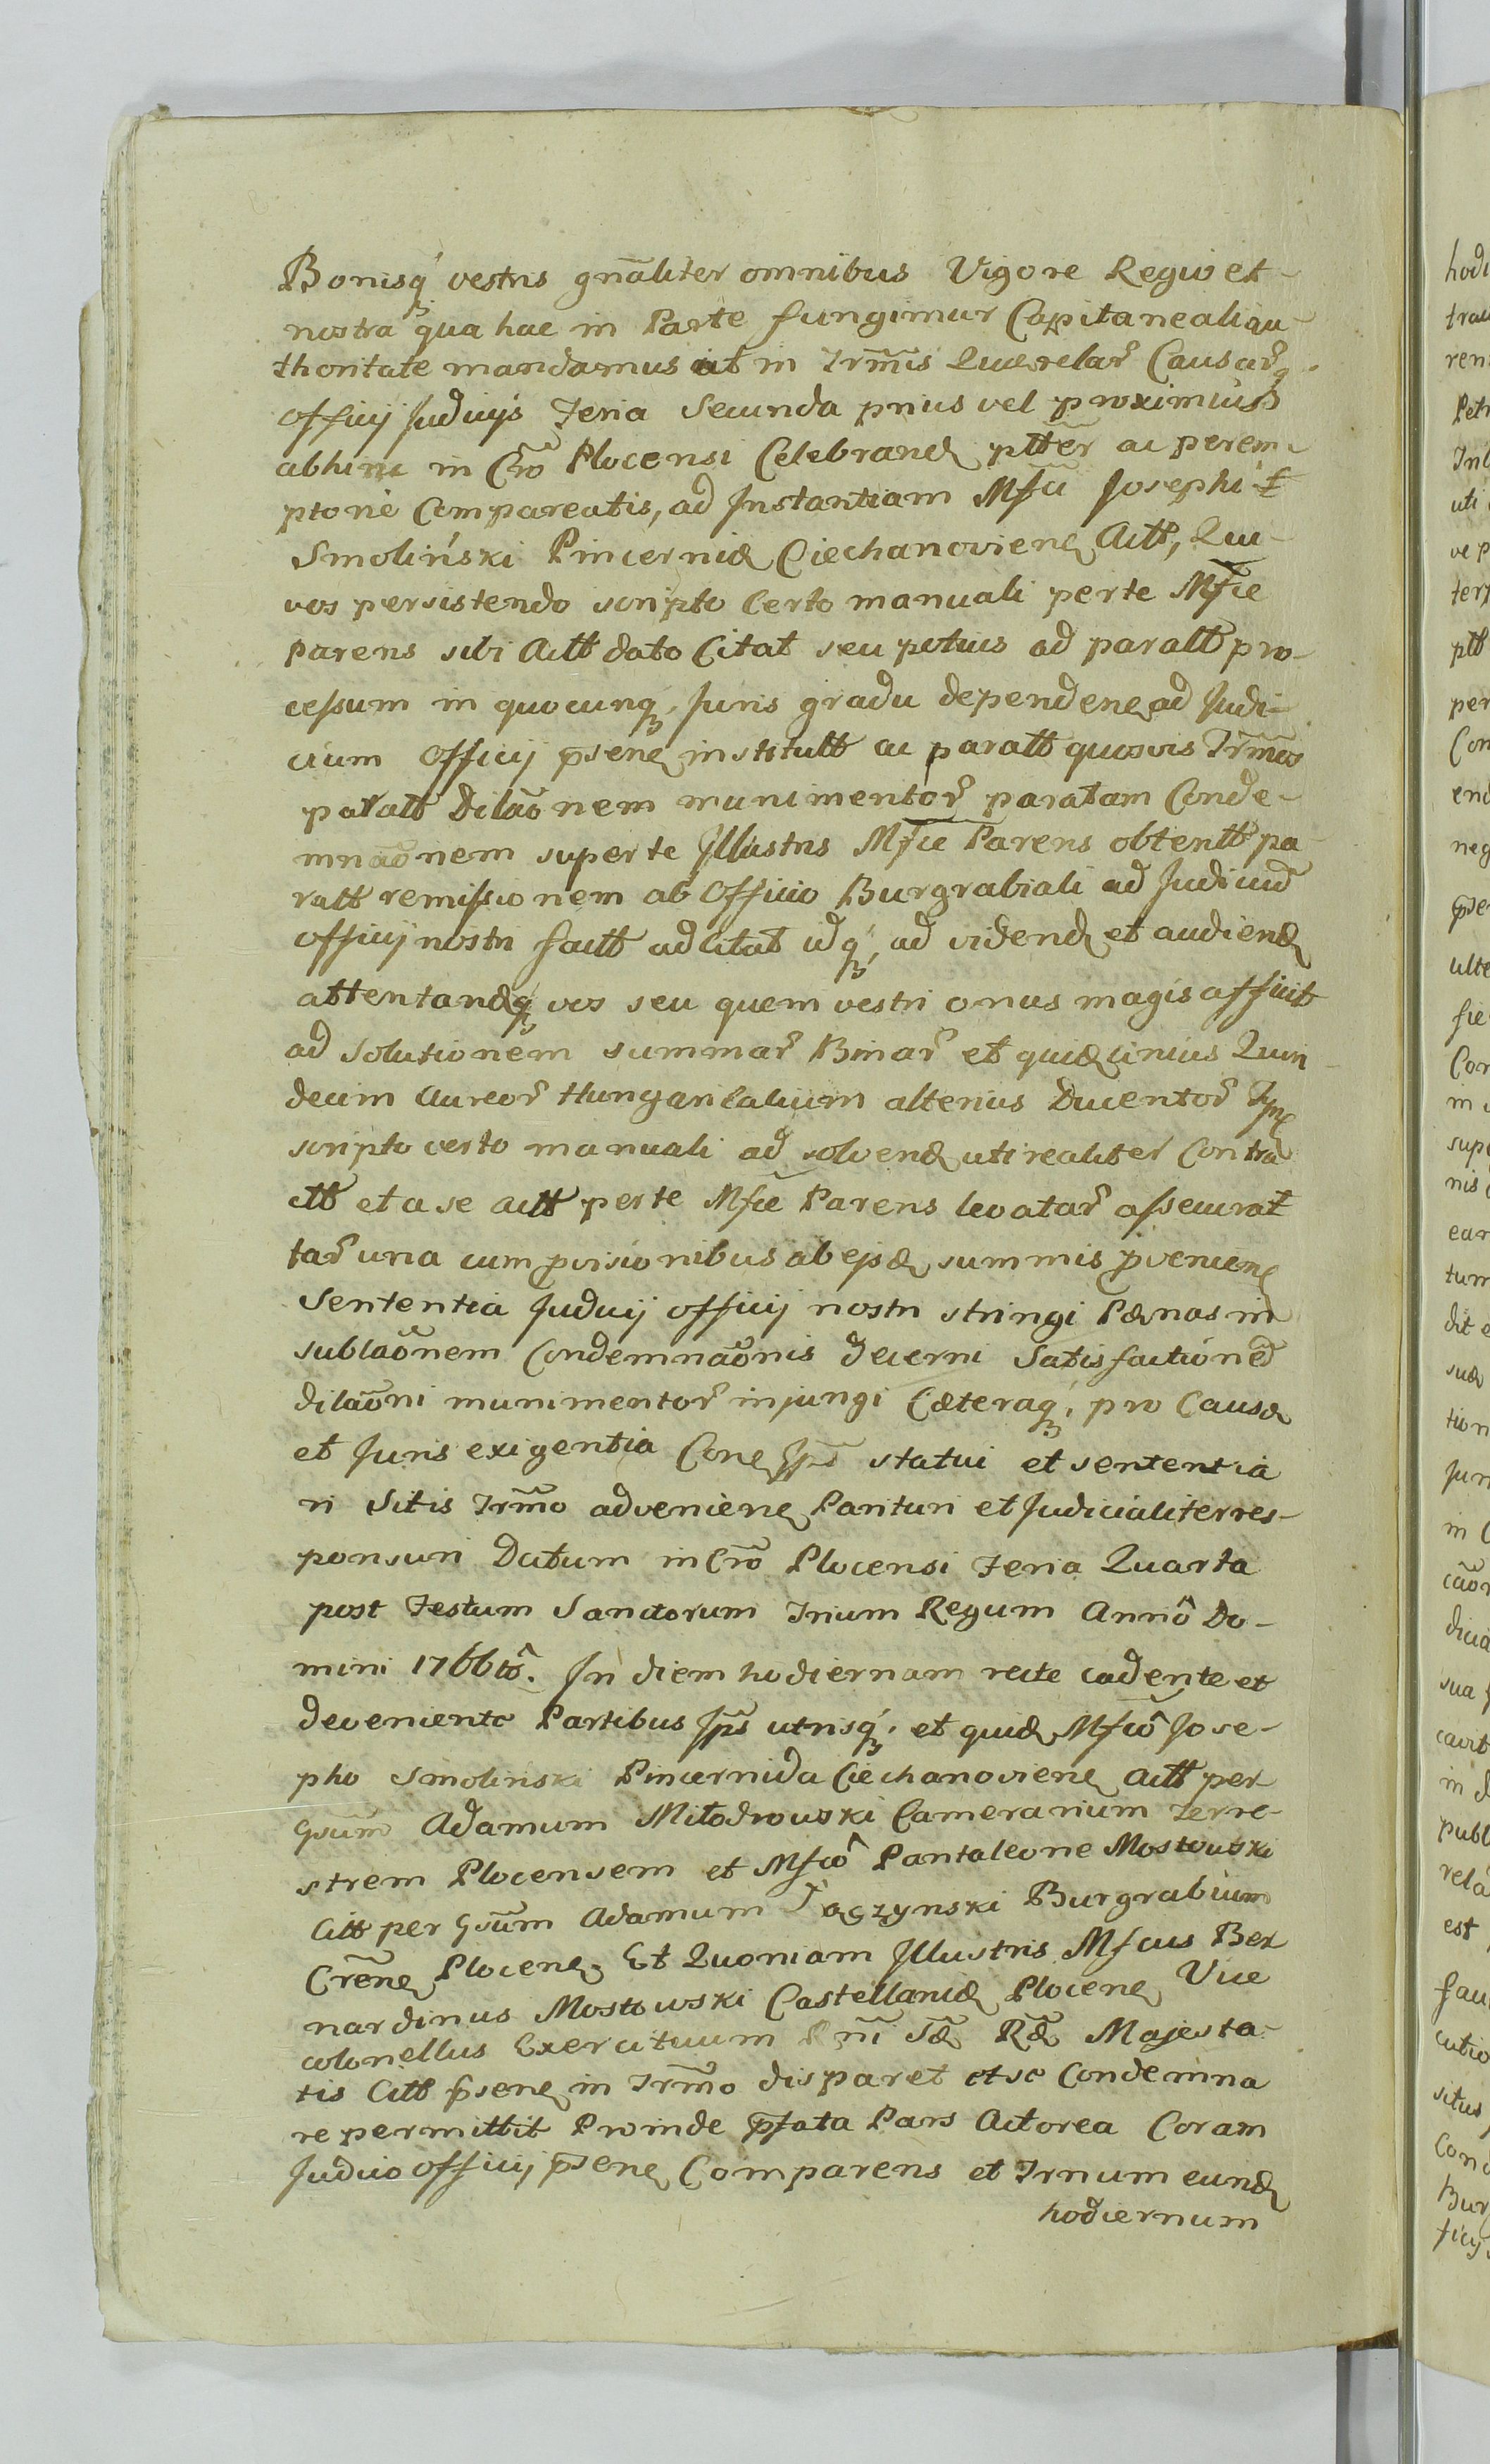 Bonisq́ vestris gnãliter omnibus Vigore Regio et-
nostra qua hac in Parte fungimur Capitaneali au-
thoritate mandamus ut in Trm̃is Querelar̃ Causarq
officij Judicijs Feria Secunda prius vel proximius
abhinc in Cr̃o Plocensi Celebrand ptter̃ ac perem-
ptorie Compareatis, ad Instantiam Mfci Josephi
Smoliński Pincernidæ Ciechanovien Actt, Qui-
vos persistendo scripto Certo manuali per te Mfice
Parens sibi Actt dato Citat seu potius ad paratt pro-
cessum in quocunq́ Juris gradu dependen ad Judi-
cium Officij p̃sen institutt ac paratt quosvis Trm̃os
paratt Dilaõnem munimentor̃ paratam Conde-
mnaõnem super te Illustris Mfice Parens obtentt pa-
ratt remissionem ab Officio Burgrabiali ad Judicium
officij nostri factt adcitat idq́, ad videnđ et audienđ
attentandq́ vos seu quem vestri onus magis afficit
ad Solutionem summar̃ Binar̃ et quidem unius Quin-
decim Aureor̃ Hungaricalium alterius Ducentor̃ Tynf
scripto certo manuali ad solvend uti realiter Contra-
ctt et a se actt per te Mfice Parens levatar̃ assecurat
tar̃ una cum provisionibus ab ejsd summis provenien
Sententia Judicij officij nostri stringi Pænas in
sublaõnem Condemnaõnis decerni Satisfactioned
dilaõni munimentor̃ injungi Cæteraq́, pro Causæ
et Juris exigentia Conc Jps statui et sententia
ri Sitis Trm̃o advenien Parituri et Judicialiter res-
ponsuri Datum in Cr̃o Plocensi Feria Quarta
post Festum Sanctorum Trium Regum Annô Do-
mini 1766tô. In diem hodiernam recte cadente et
deveniente Partibus Jps utrisq́, et quidem Mfcô Jose-
pho Smolinski Pincernida Ciechanovien Actt per
Gsum Adamum Miłodrowski Camerarium Terre-
strem Plocensem et Mfcô Pantaleone Mostowski
Citt per Gsum Adamum Jaczynski Burgrabium
Cren̄ Plocen. Et Quoniam Illustris Mfcus Ber
nardinus Mostowski Castellanidæ Plocen Vice
colonellus Exercituum Rñi Sæ Ræ Majesta-
tis Citt p̃sen in Trm̃o disparet et se Condemna
re permittit Proinde p̃fata Pars Actorea Coram
Judicio officij p̃sen Comparens et Trnum eund
hodiernum